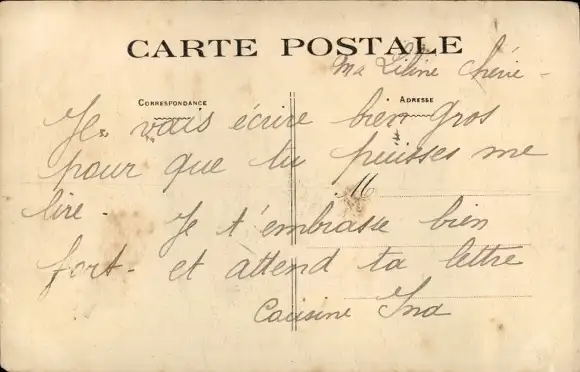 CARTE POSTALE
Ma Liline chérie -
CORRESPONDANCE
ADRESSE
Je vais écrire bien gros
pour que tu puisses me
M
lire. Je t'embrasse bien
fort - et attend ta lettre
Cousine Ina